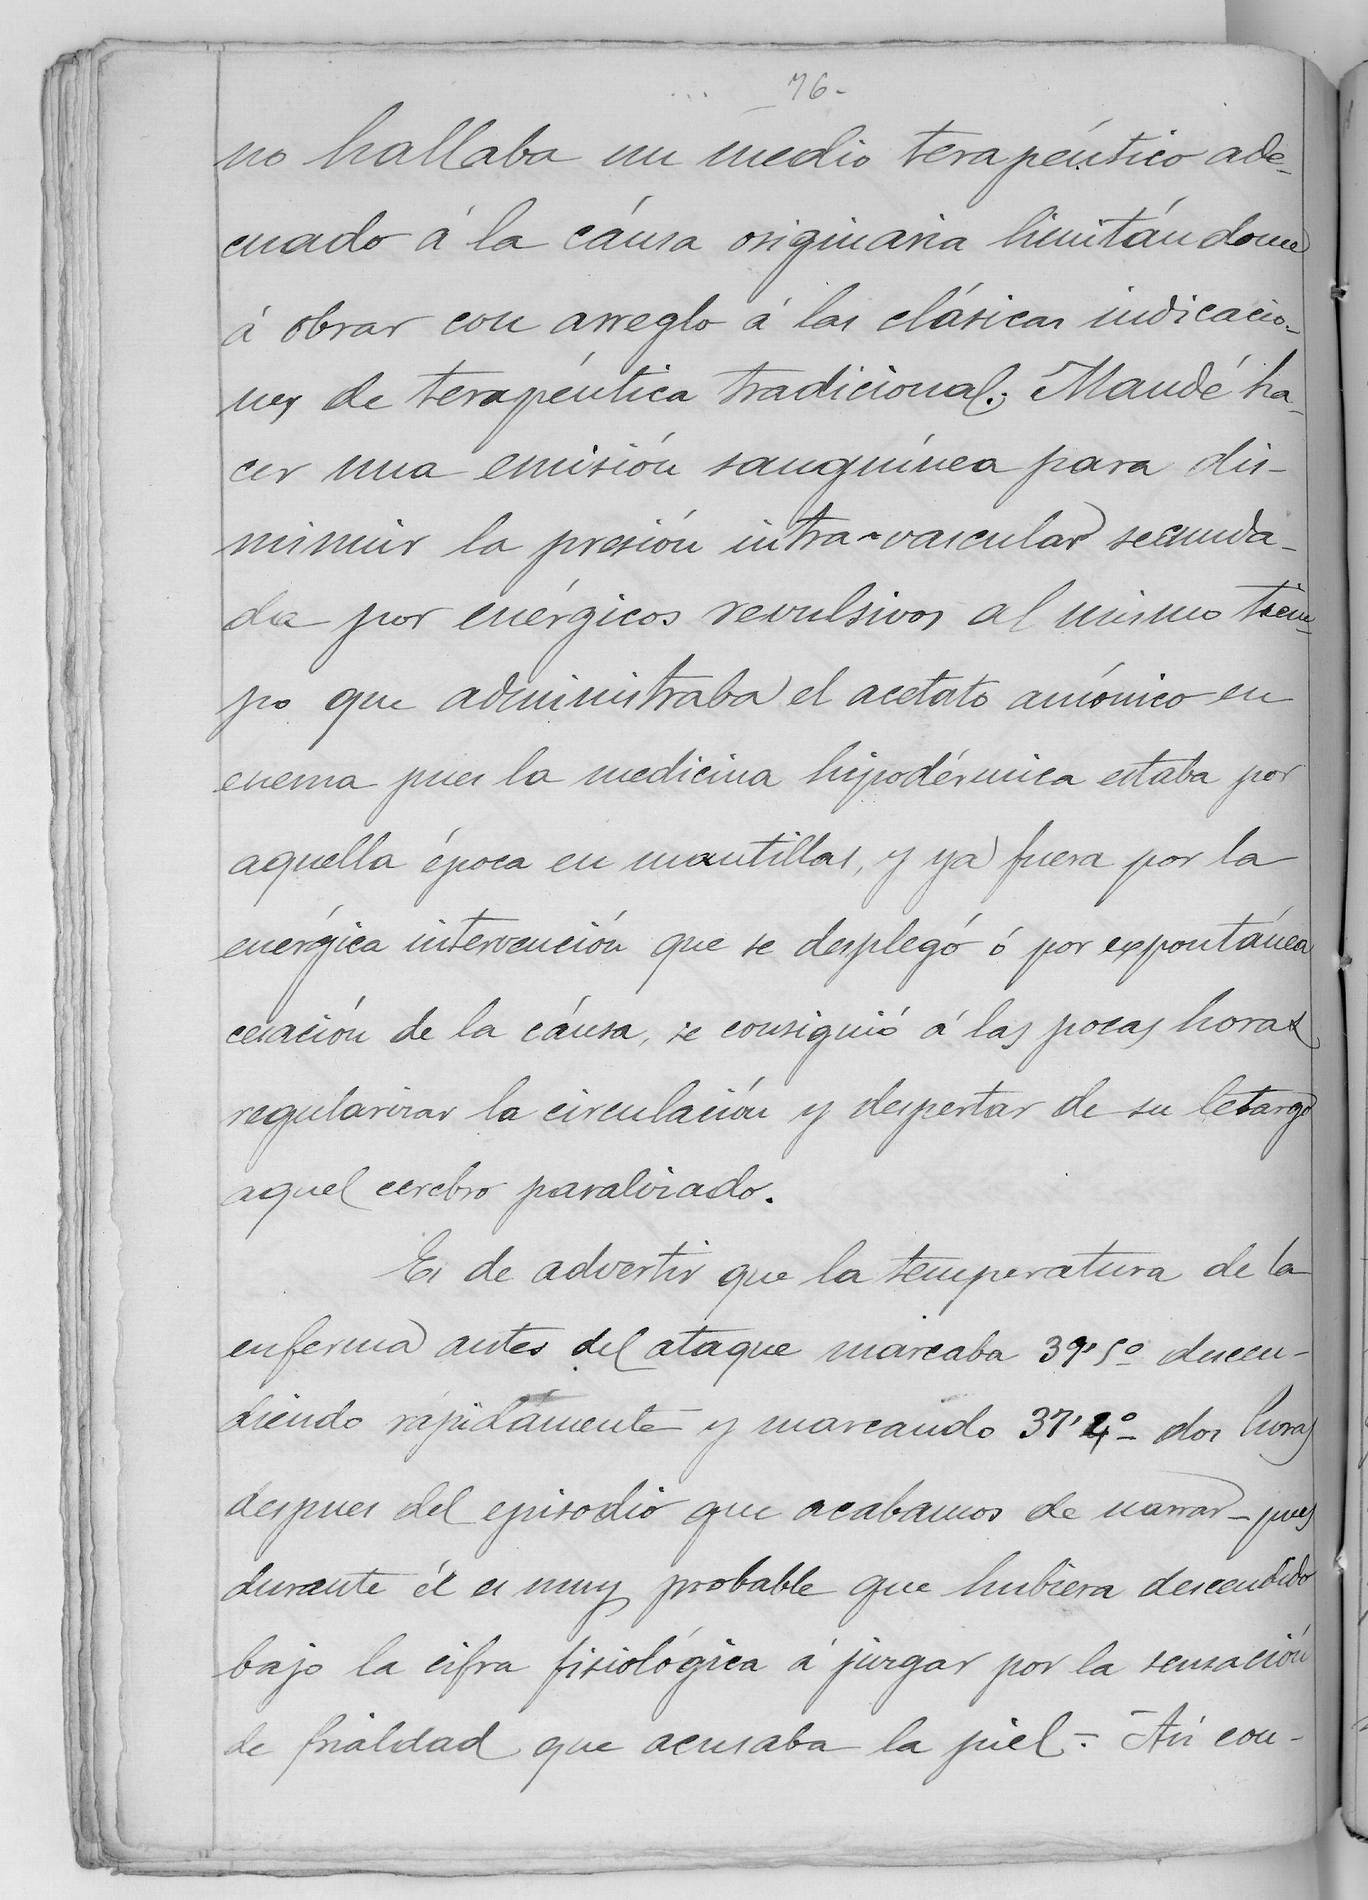 76-
no hallaba un medio terapéutico ade-
cuado á la cáusa originaria limitándome
á obrar con arreglo á las clásicas indicacio-
nes de terapéutica tradicional.; Mandé ha-
cer una emisión sanguínea para dis-
minuir la presión intra-vascular secunda-
da por enérgicos revulsivos al mismo tiem-
po que administraba el acetato amónico en
enema pues la medicina hipodérmica estaba por
aquella época en mantillas, y ya fuera por la
enérgica intervención que se desplegó ó por expontánea
cesación de la cáusa, se consiguió á las pocas horas
regularizar la circulación y despertar de su letargo
aquel cerebro paralizado.
Es de advertir que la temperatura de la
enferma antes del ataque marcaba 39'5º descen-
diendo rápidamente y marcando 37'4º dos horas
despues del episodio que acabamos de narrar - pues
durante él es muy probable que hubiera descendido
bajo la cifra fisiológica á juzgar por la sensación
de frialdad que acusaba la piel.- Así con-